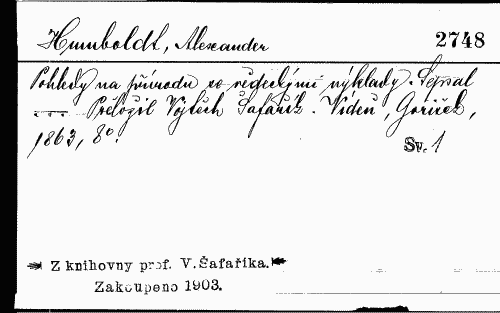 Humboldt, Alexander 2748
Pohledy na přírodu se vědeckými výklady. Sepsal
.... Přeložil Vojtěch Šafařík. Vídeň, Gorišek,
1863, 8o. Sv. 1
Z knihovny prof. V. Šafaříka.
Zakoupeno 1903.